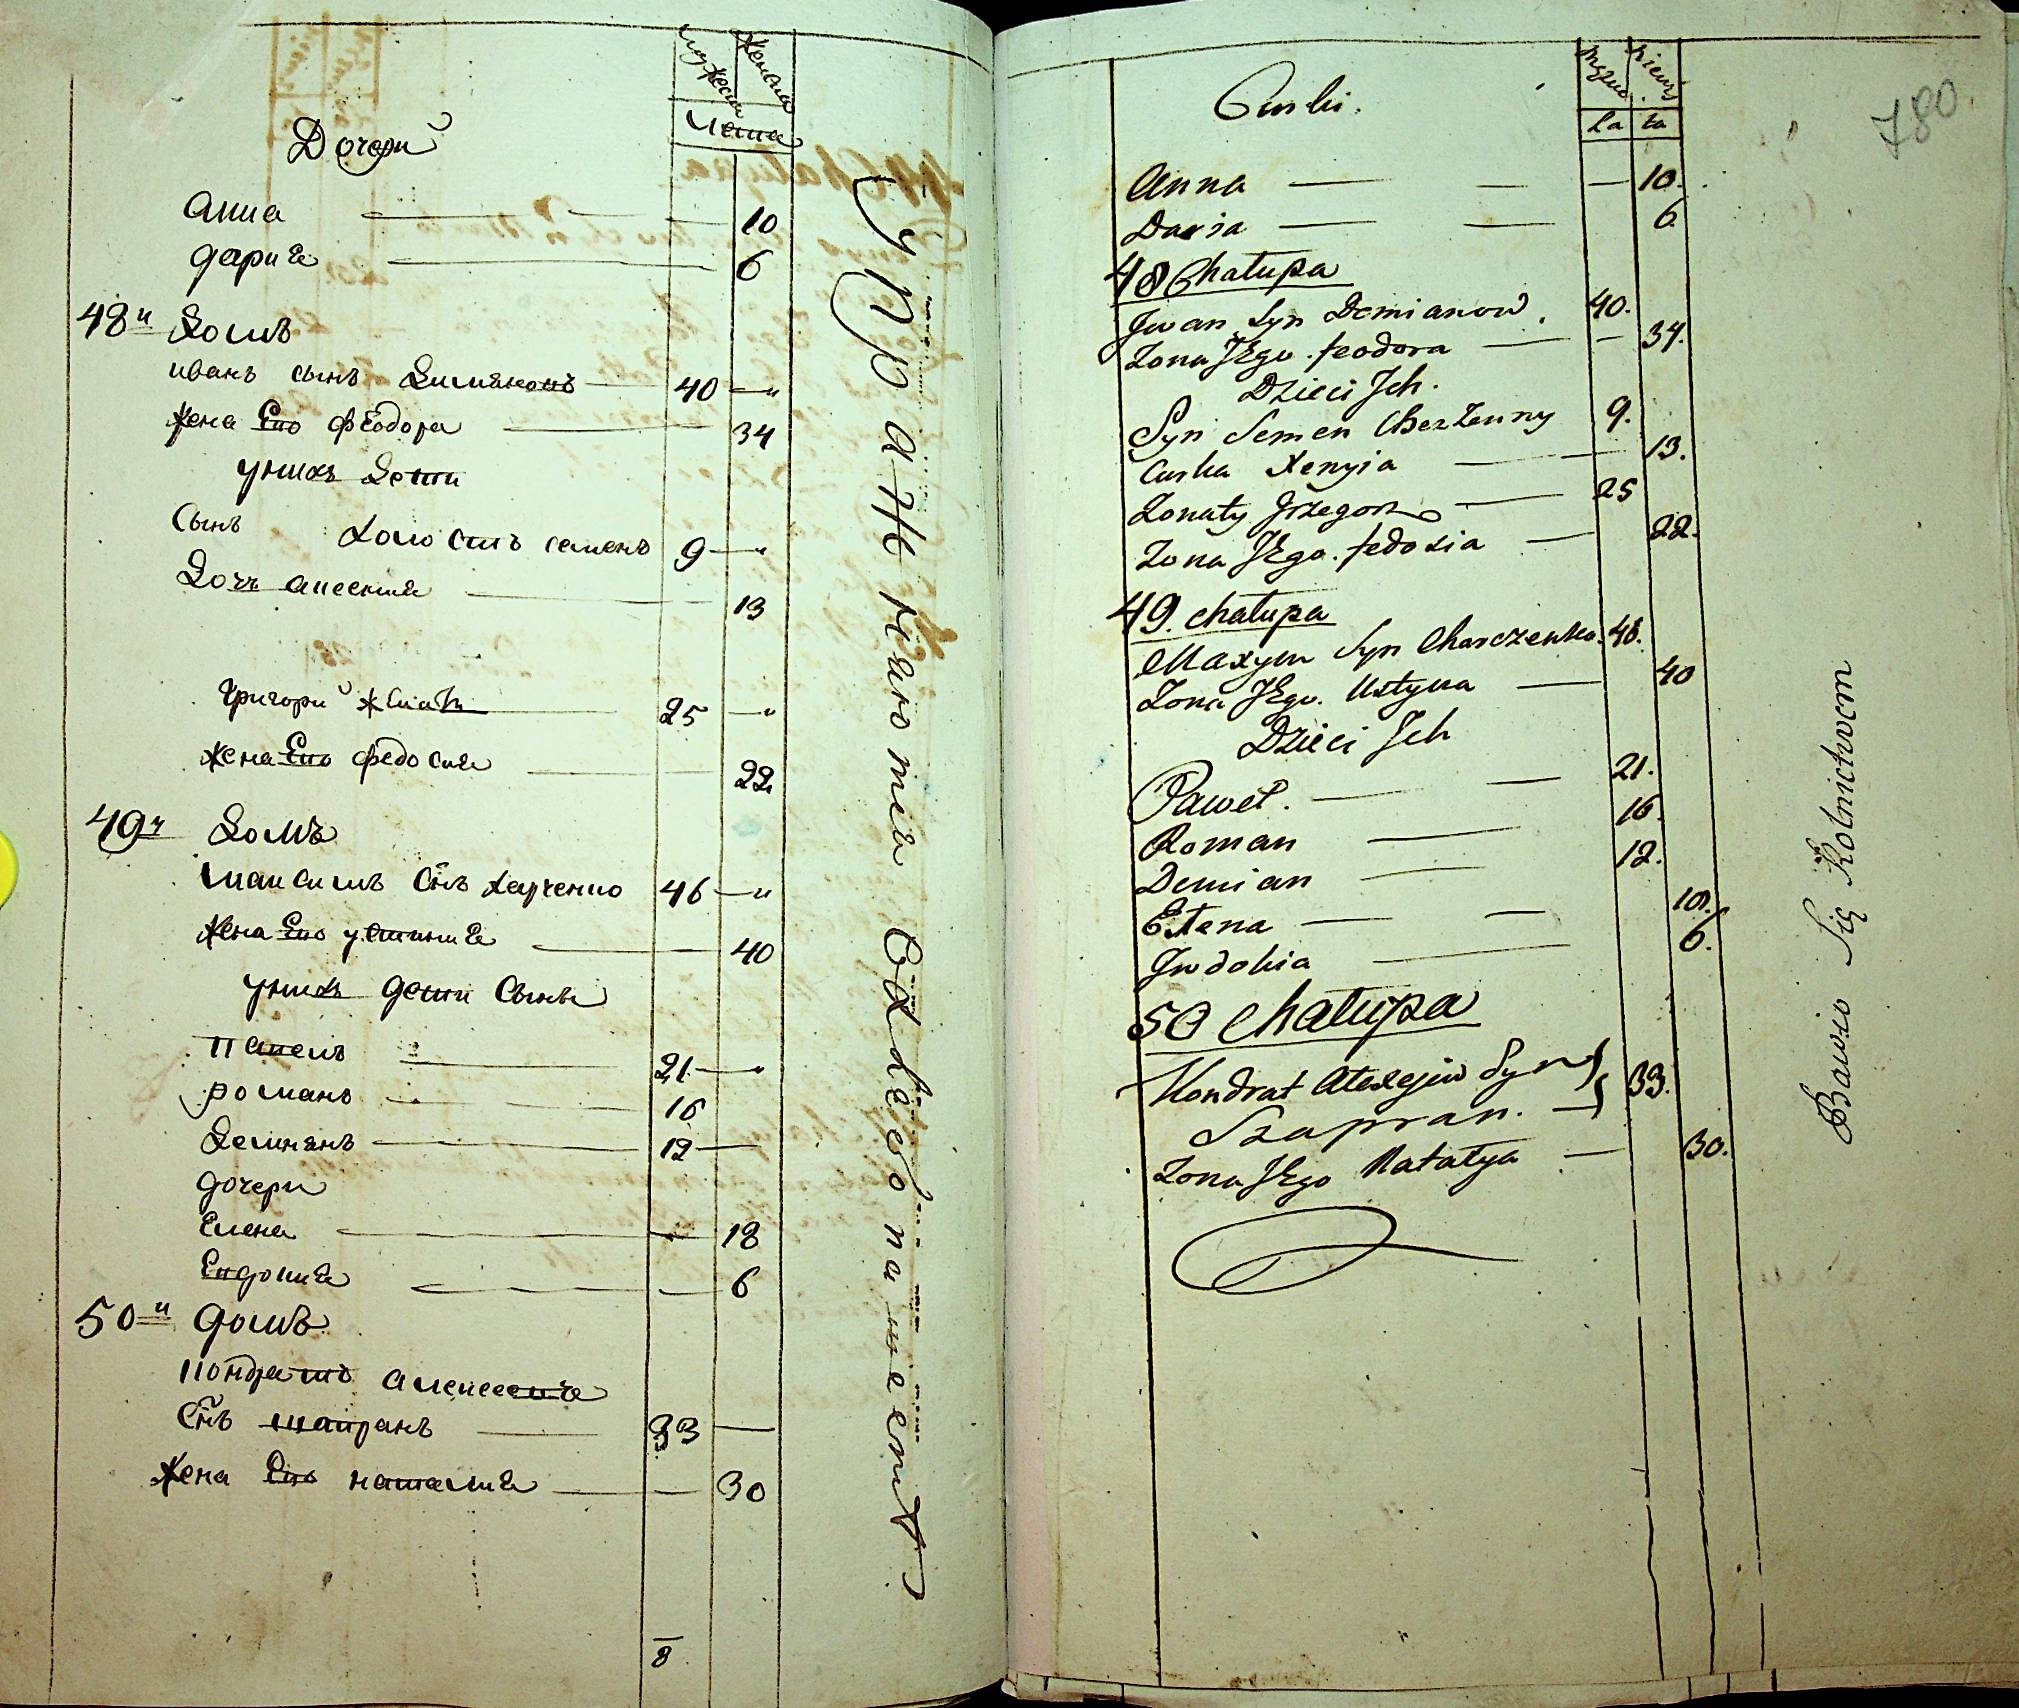 мужеска
женска
лета
Дочери
анна 10
дария 6
48й Домъ
иванъ сынъ Димяновъ 40 — "
жена Его феодора 34
у нихъ Дети
Сынъ холостъ семенъ 9 — "
Дочь аксения 13
григори жанатъ 25 — "
жена Его федосия 22
49й Домъ
максимъ Снъ харченко 46 — "
жена Его устиния 40
у нихъ дети Сыны
павелъ 21 — "
романъ 16
Демиянъ 12 —
дочери
Елена 18
Евдокия 6
50й домъ
кондратъ алексеевъ
Снъ шапранъ 33 —
жена Его наталия 30
8
упражняются въ хлебопашестве
780.
Męzka
Niewś
La ta
Curki.
Anna — — — 10.
Daria — — 6
48 Chatupa
Jwan Syn Demianow. 40.
Zona JEgo. feodora — — 34.
Dzieci Jch.
Syn Semen Bezżenny 9.
Curka Xenyia — — 13.
Zonaty Grzegorz — 25
Zona JEgo. fedosia — 22.
49. chatupa
Maxym Syn Charczenka. 46.
Zona JEgo. Ustyna — 40
Dzieci Jch
Paweł. — — 21.
Roman — 16.
Demian — 12.
Elena — — 18.
Jwdokia — 6.
50 chatupa
Kondrat Alexejew Syn } 33.
Szapran. — }
Zona JEgo Natalya — 30.
Bawio Się Rolnictwem